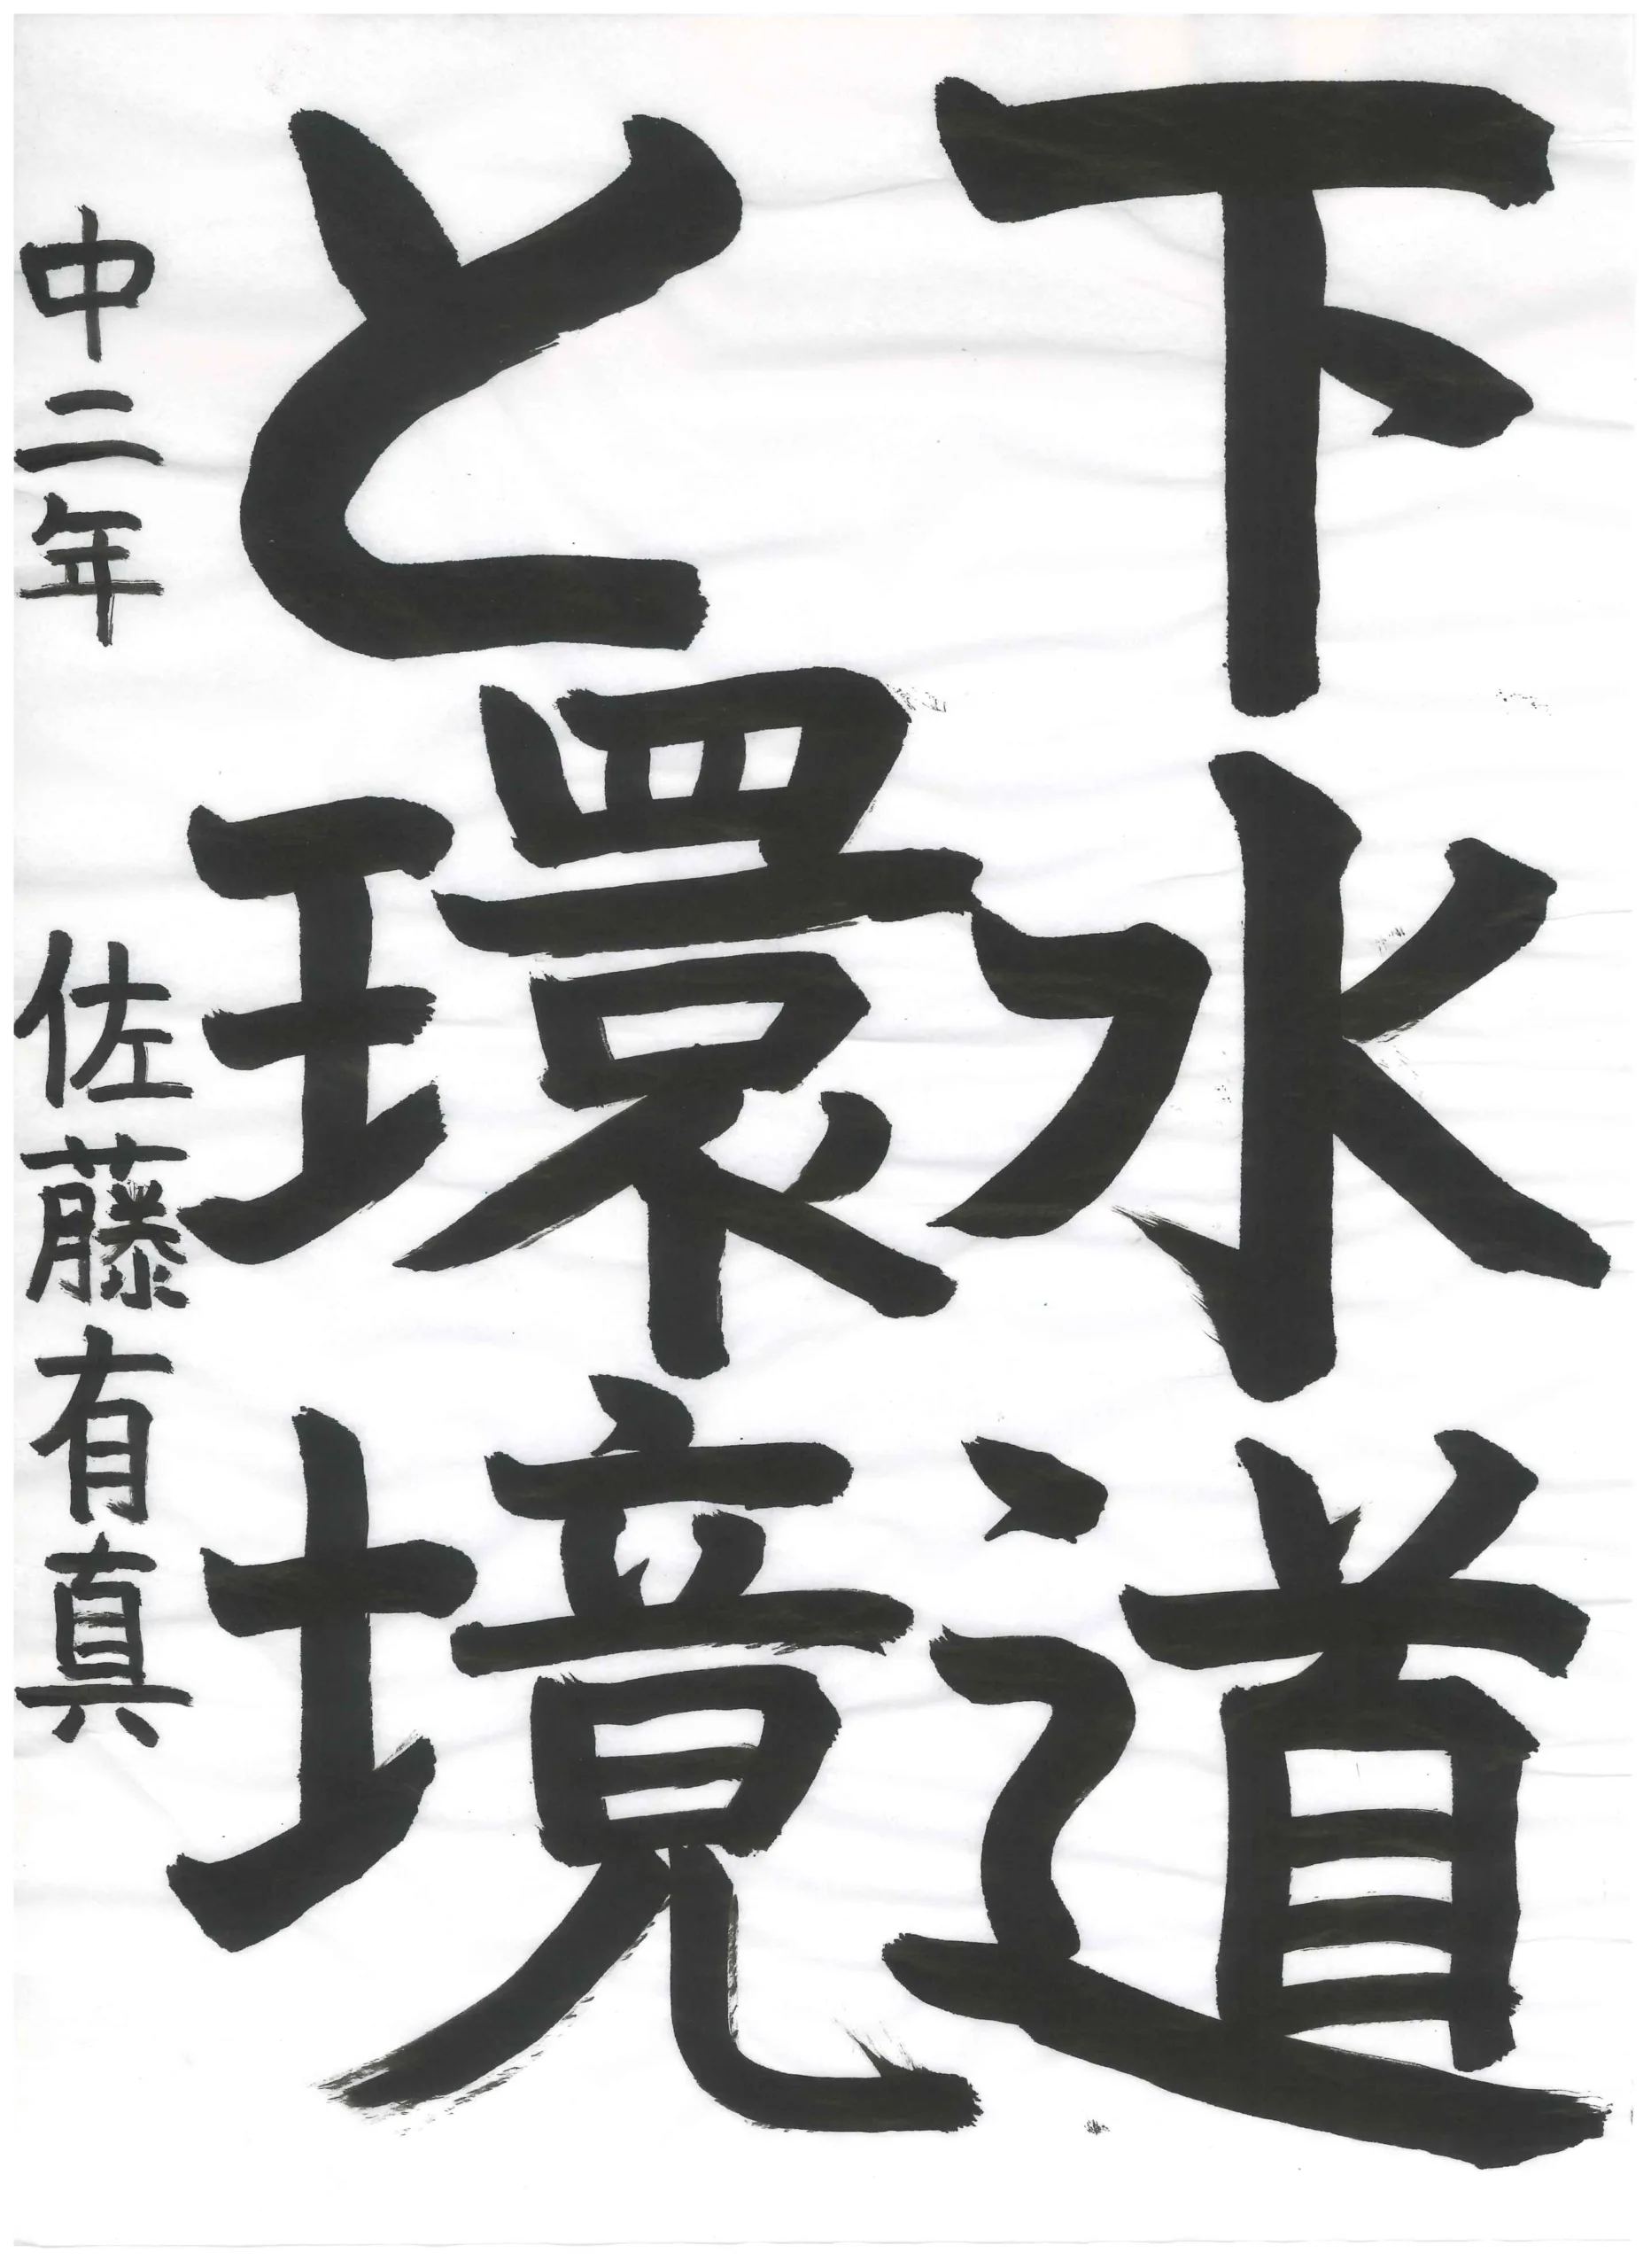 下水道
と環境
中二年 佐藤有真